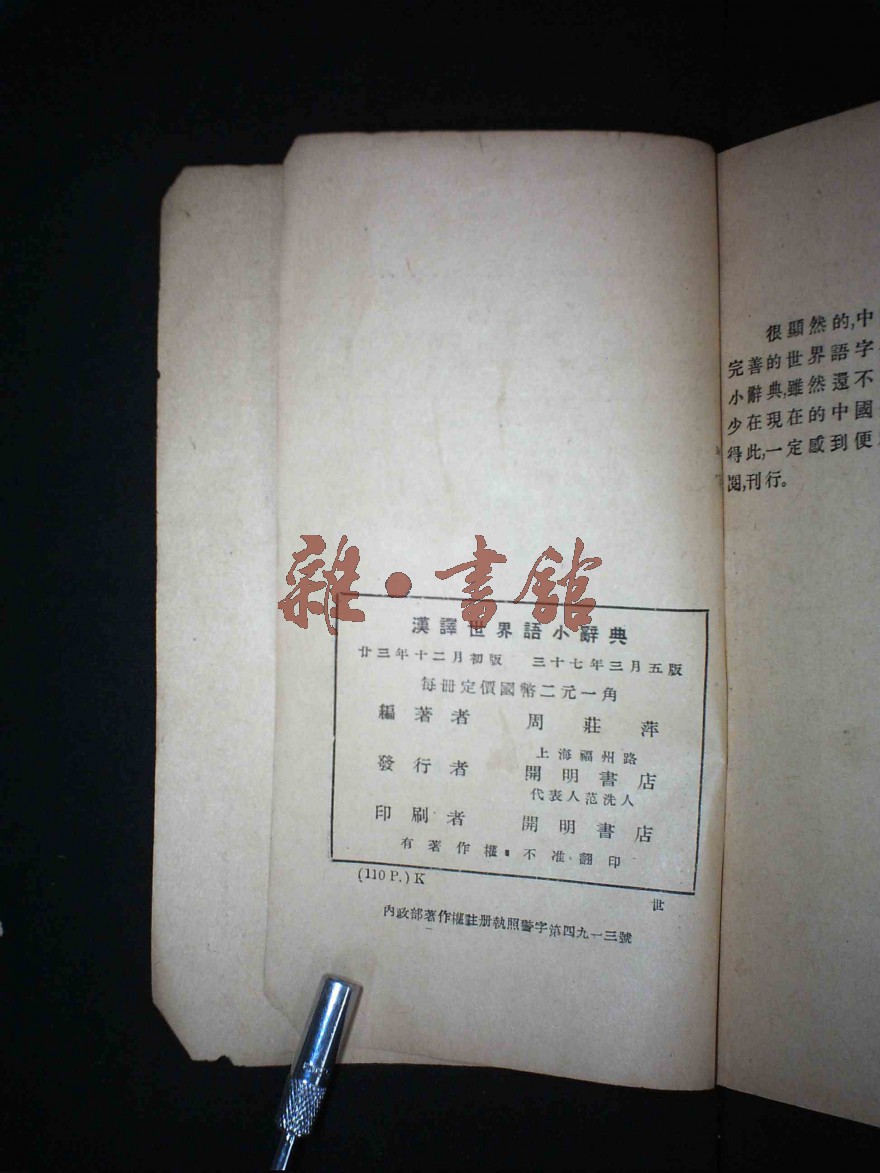 很顯然的,中
完善的世界語字
小辭典,雖然還不
少在現在的中國
得此,一定感到便
閱,刊行。
雜·書館
漢譯世界語小辭典
廿三年十二月初版 三十七年三月五版
每冊定價國幣二元一角
編著者 周莊萍
發行者 上海福州路
開明書店
代表人范洗人
印刷者 開明書店
有著作權·不准翻印
(110 P.) K
世
內政部著作權註册執照警字第四九一三號